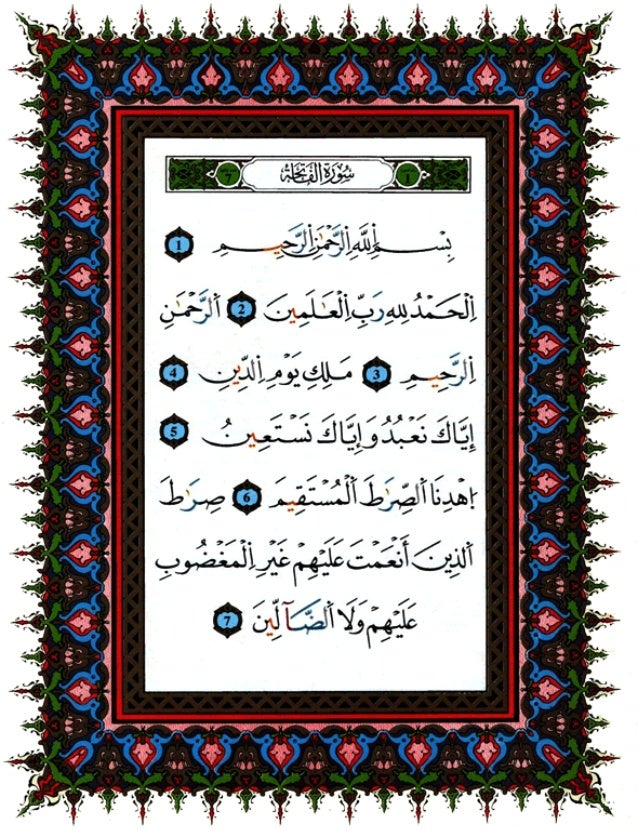 سُورَةُ الفَاتِحَة
1
7
بِسْمِ اِ۬للَّهِ اِ۬لرَّحْمَٰنِ اِ۬لرَّحِيمِ 1
اِ۬لْحَمْدُ لِلهِ رَبِّ اِ۬لْعَٰلَمِينَ 2 اَ۬لرَّحْمَٰنِ
اِ۬لرَّحِيمِ 3 مَلِكِ يَوْمِ اِ۬لدِّينِ 4
إِيَّاكَ نَعْبُدُ وَإِيَّاكَ نَسْتَعِينُ 5
اِ۪هْدِنَا اَ۬لصِّرَٰطَ اَ۬لْمُسْتَقِيمَ 6 صِرَٰطَ
اَ۬لذِينَ أَنْعَمْتَ عَلَيْهِمْ غَيْرِ اِ۬لْمَغْضُوبِ
عَلَيْهِمْ وَلَا اَ۬لضَّآلِّينَ 7